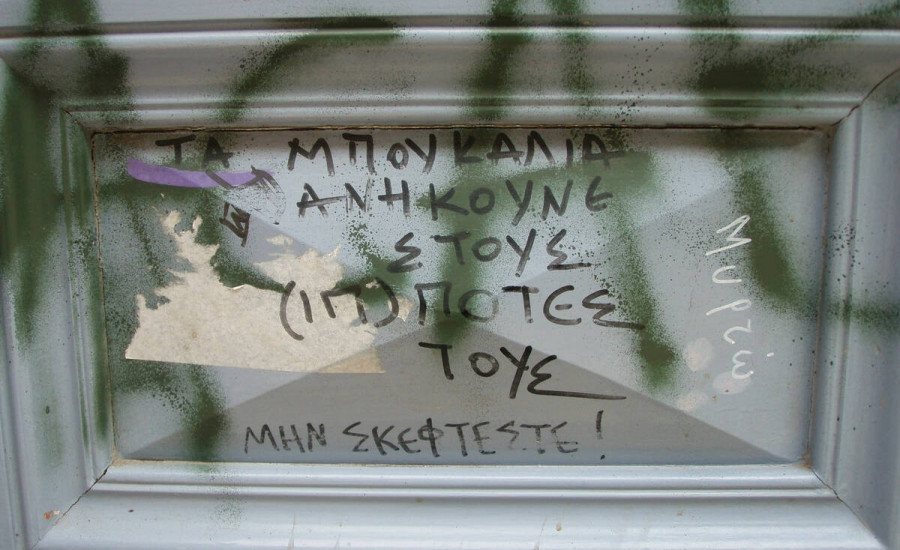 ΤΑ ΜΠΟΥΚΑΛΙΑ
ΑΝΗΚΟΥΝΕ
ΣΤΟΥΣ
(ΙΠ)ΠΟΤΕΣ
ΤΟΥΣ
ΜΗΝ ΣΚΕΦΤΕΣΤΕ!
Μυρτώ